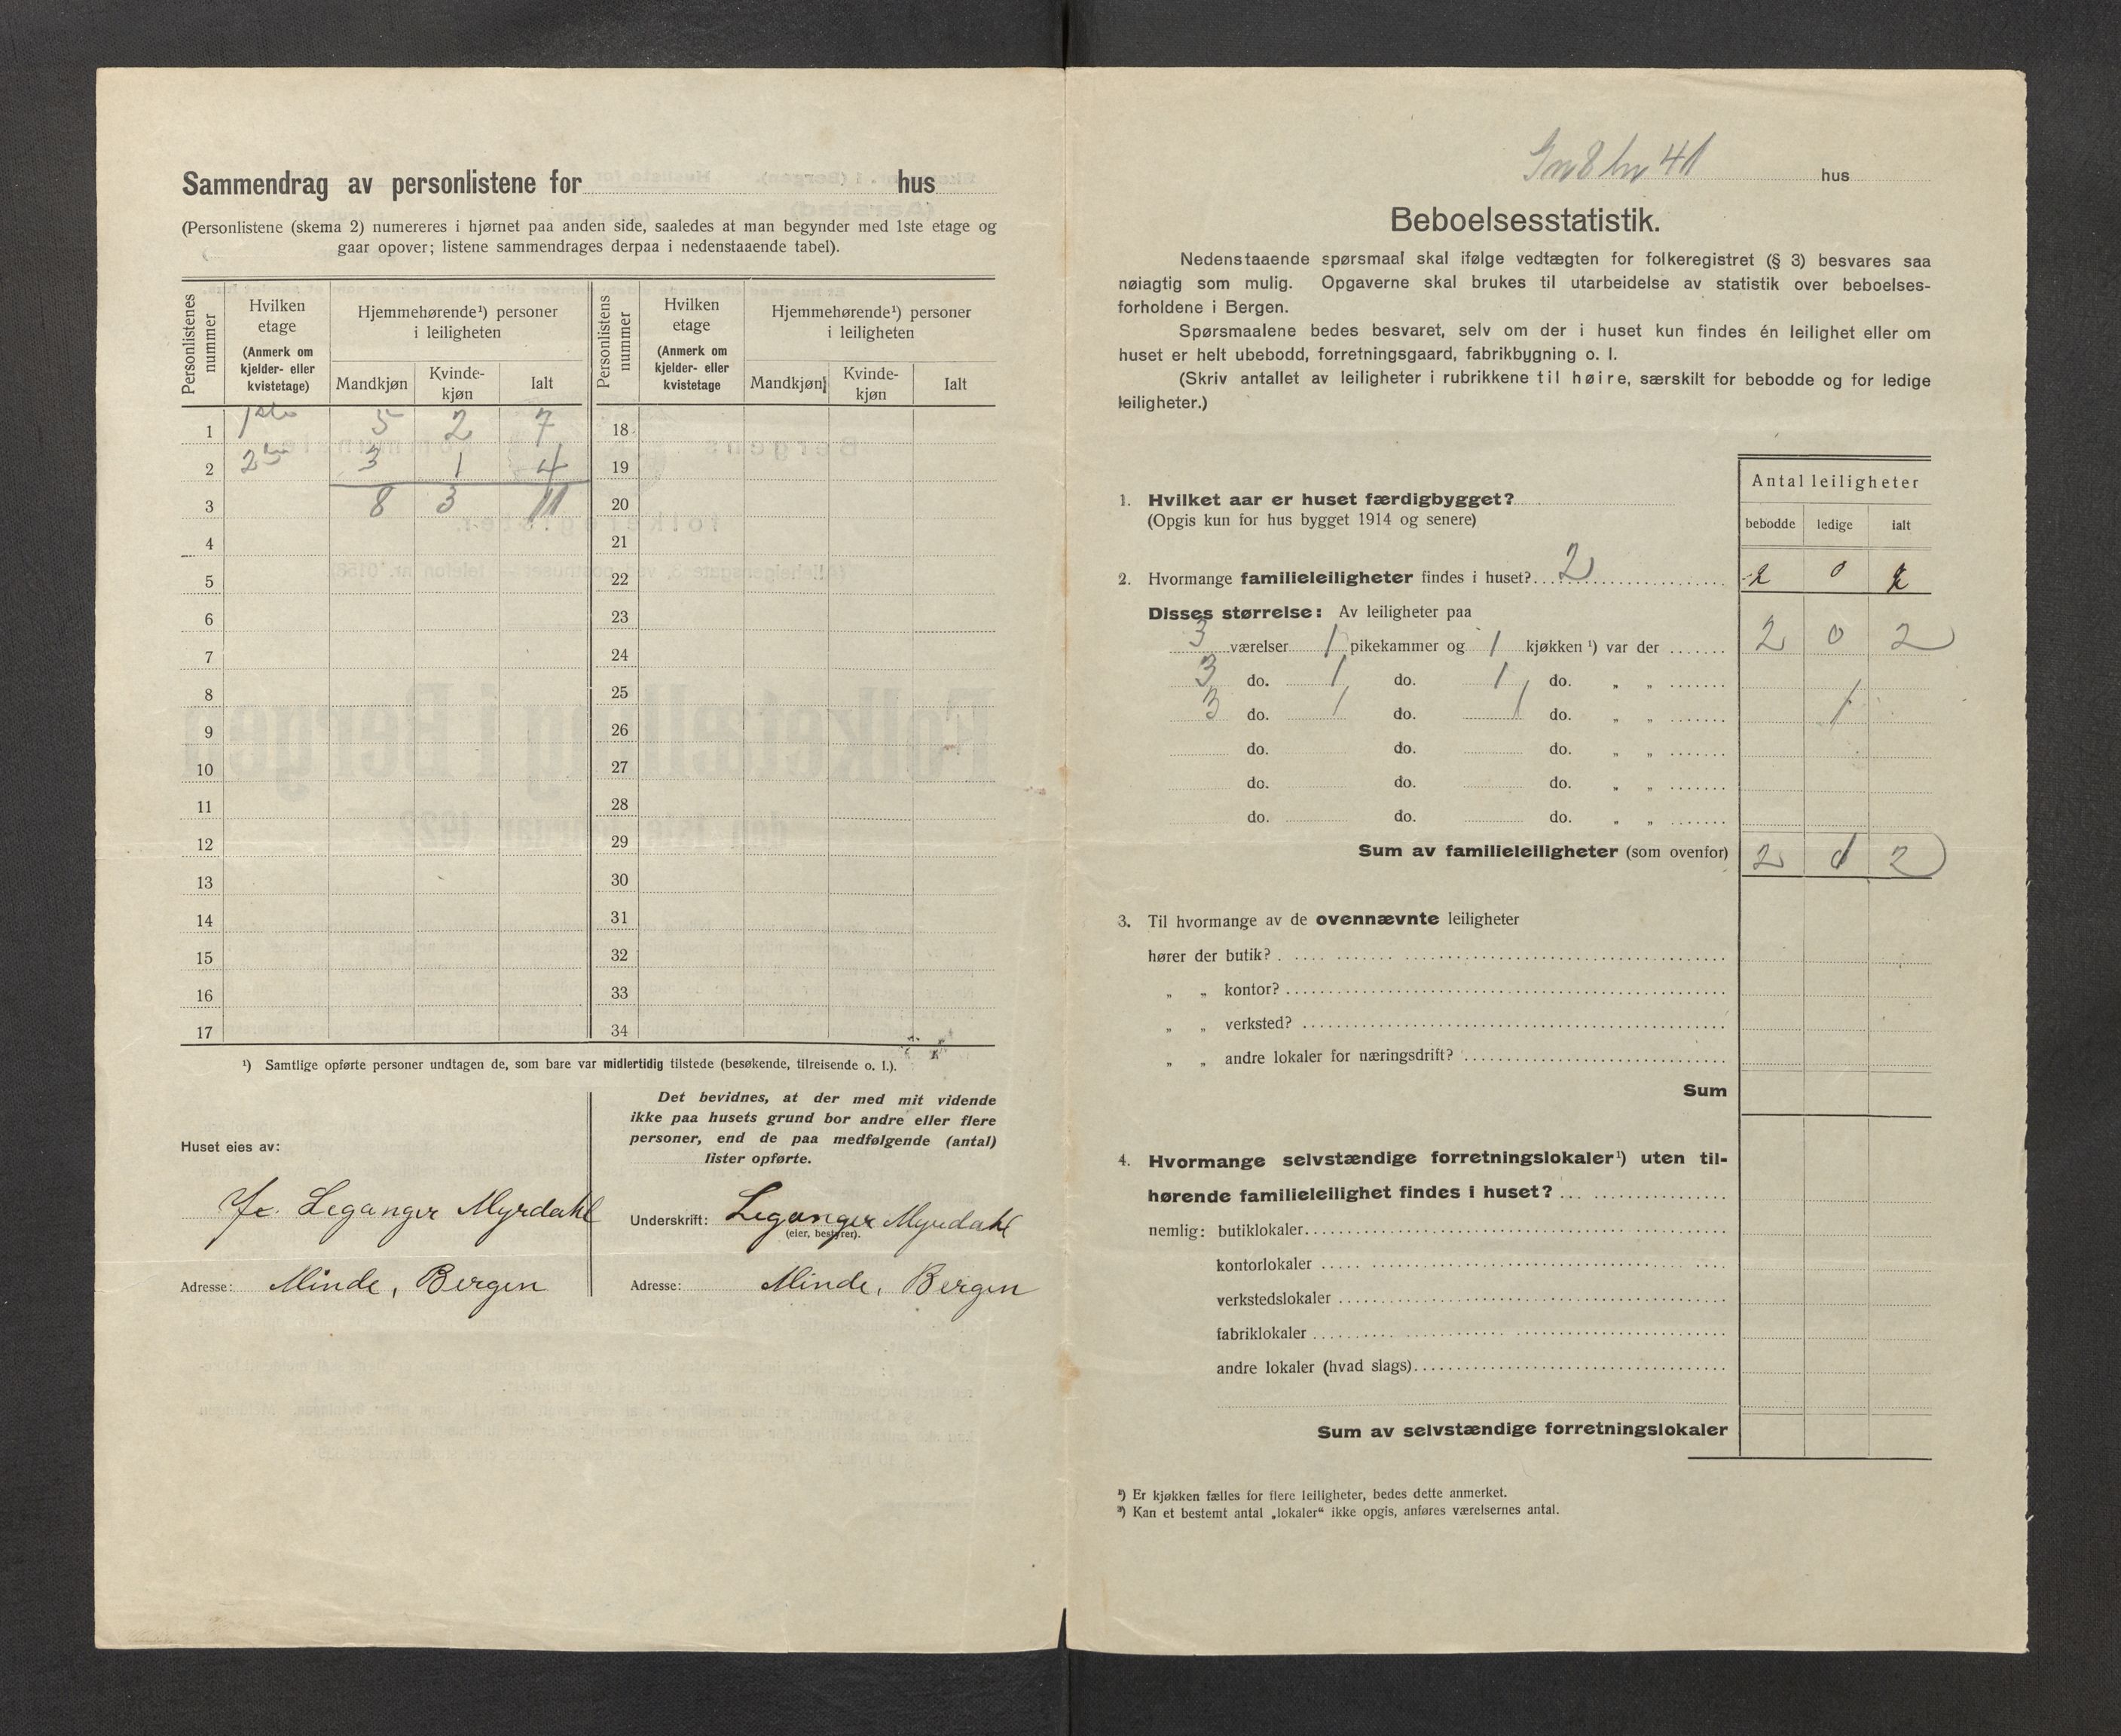 Sammendrag av personlistene for hus
(Personlistene (skema 2) numereres i hjørnet paa anden side, saaledes at man begynder med 1ste etage og
gaar opover; listene sammendrages derpaa i nedenstaaende tabel).
Personlistenes nummer | Hvilken etage (Anmerk om kjelder- eller kvistetage) | Hjemmehørende¹) personer i leiligheten | Personlistens nummer | Hvilken etage (Anmerk om kjelder- eller kvistetage | Hjemmehørende¹) personer i leiligheten
Mandkjøn | Kvinde-kjøn | Ialt | Mandkjøn | Kvinde-kjøn | Ialt
1 1ste 5 2 7 18
2 2 3 1 4 19
3 8 3 11 20
4 21
5 22
6 23
7 24
8 25
9 26
10 27
11 28
12 29
13 30
14 31
15 32
16 33
17 34
¹) Samtlige opførte personer undtagen de, som bare var midlertidig tilstede (besøkende, tilreisende o. l.).
Huset eies av:
Leganger Myrdahl
Adresse: Minde, Bergen
Det bevidnes, at der med mit vidende
ikke paa husets grund bor andre eller flere
personer, end de paa medfølgende (antal)
lister opførte.
Underskrift: Leganger Myrdahl
(eier, bestyrer).
Adresse: Minde, Bergen
41 hus
Beboelsesstatistik.
Nedenstaaende spørsmaal skal ifølge vedtægten for folkeregistret (§ 3) besvares saa
nøiagtig som mulig. Opgaverne skal brukes til utarbeidelse av statistik over beboelses-
forholdene i Bergen.
Spørsmaalene bedes besvaret, selv om der i huset kun findes én leilighet eller om
huset er helt ubebodd, forretningsgaard, fabrikbygning o. l.
(Skriv antallet av leiligheter i rubrikkene til høire, særskilt for bebodde og for ledige
leiligheter.)
Antal leiligheter
bebodde ledige ialt
1. Hvilket aar er huset færdigbygget?
(Opgis kun for hus bygget 1914 og senere)
2. Hvormange familieleiligheter findes i huset? 2 2 0 2
Disses størrelse: Av leiligheter paa
3 værelser 1 pikekammer og 1 kjøkken ¹) var der 2 0 2
3 do. 1 do. 1 do. „ „
3 do. 1 do. 1 do. „ „ 1
do. do. do. „ „
do. do. do. „ „
do. do. do. „ „
Sum av familieleiligheter (som ovenfor) 2 2
3. Til hvormange av de ovennævnte leiligheter
hører der butik?
„ „ kontor?
„ „ verksted?
„ „ andre lokaler for næringsdrift?
Sum
4. Hvormange selvstændige forretningslokaler¹) uten til-
hørende familieleilighet findes i huset?
nemlig: butiklokaler
kontorlokaler
verkstedslokaler
fabriklokaler
andre lokaler (hvad slags)
Sum av selvstændige forretningslokaler
¹) Er kjøkken fælles for flere leiligheter, bedes dette anmerket.
²) Kan et bestemt antal „lokaler“ ikke opgis, anføres værelsernes antal.